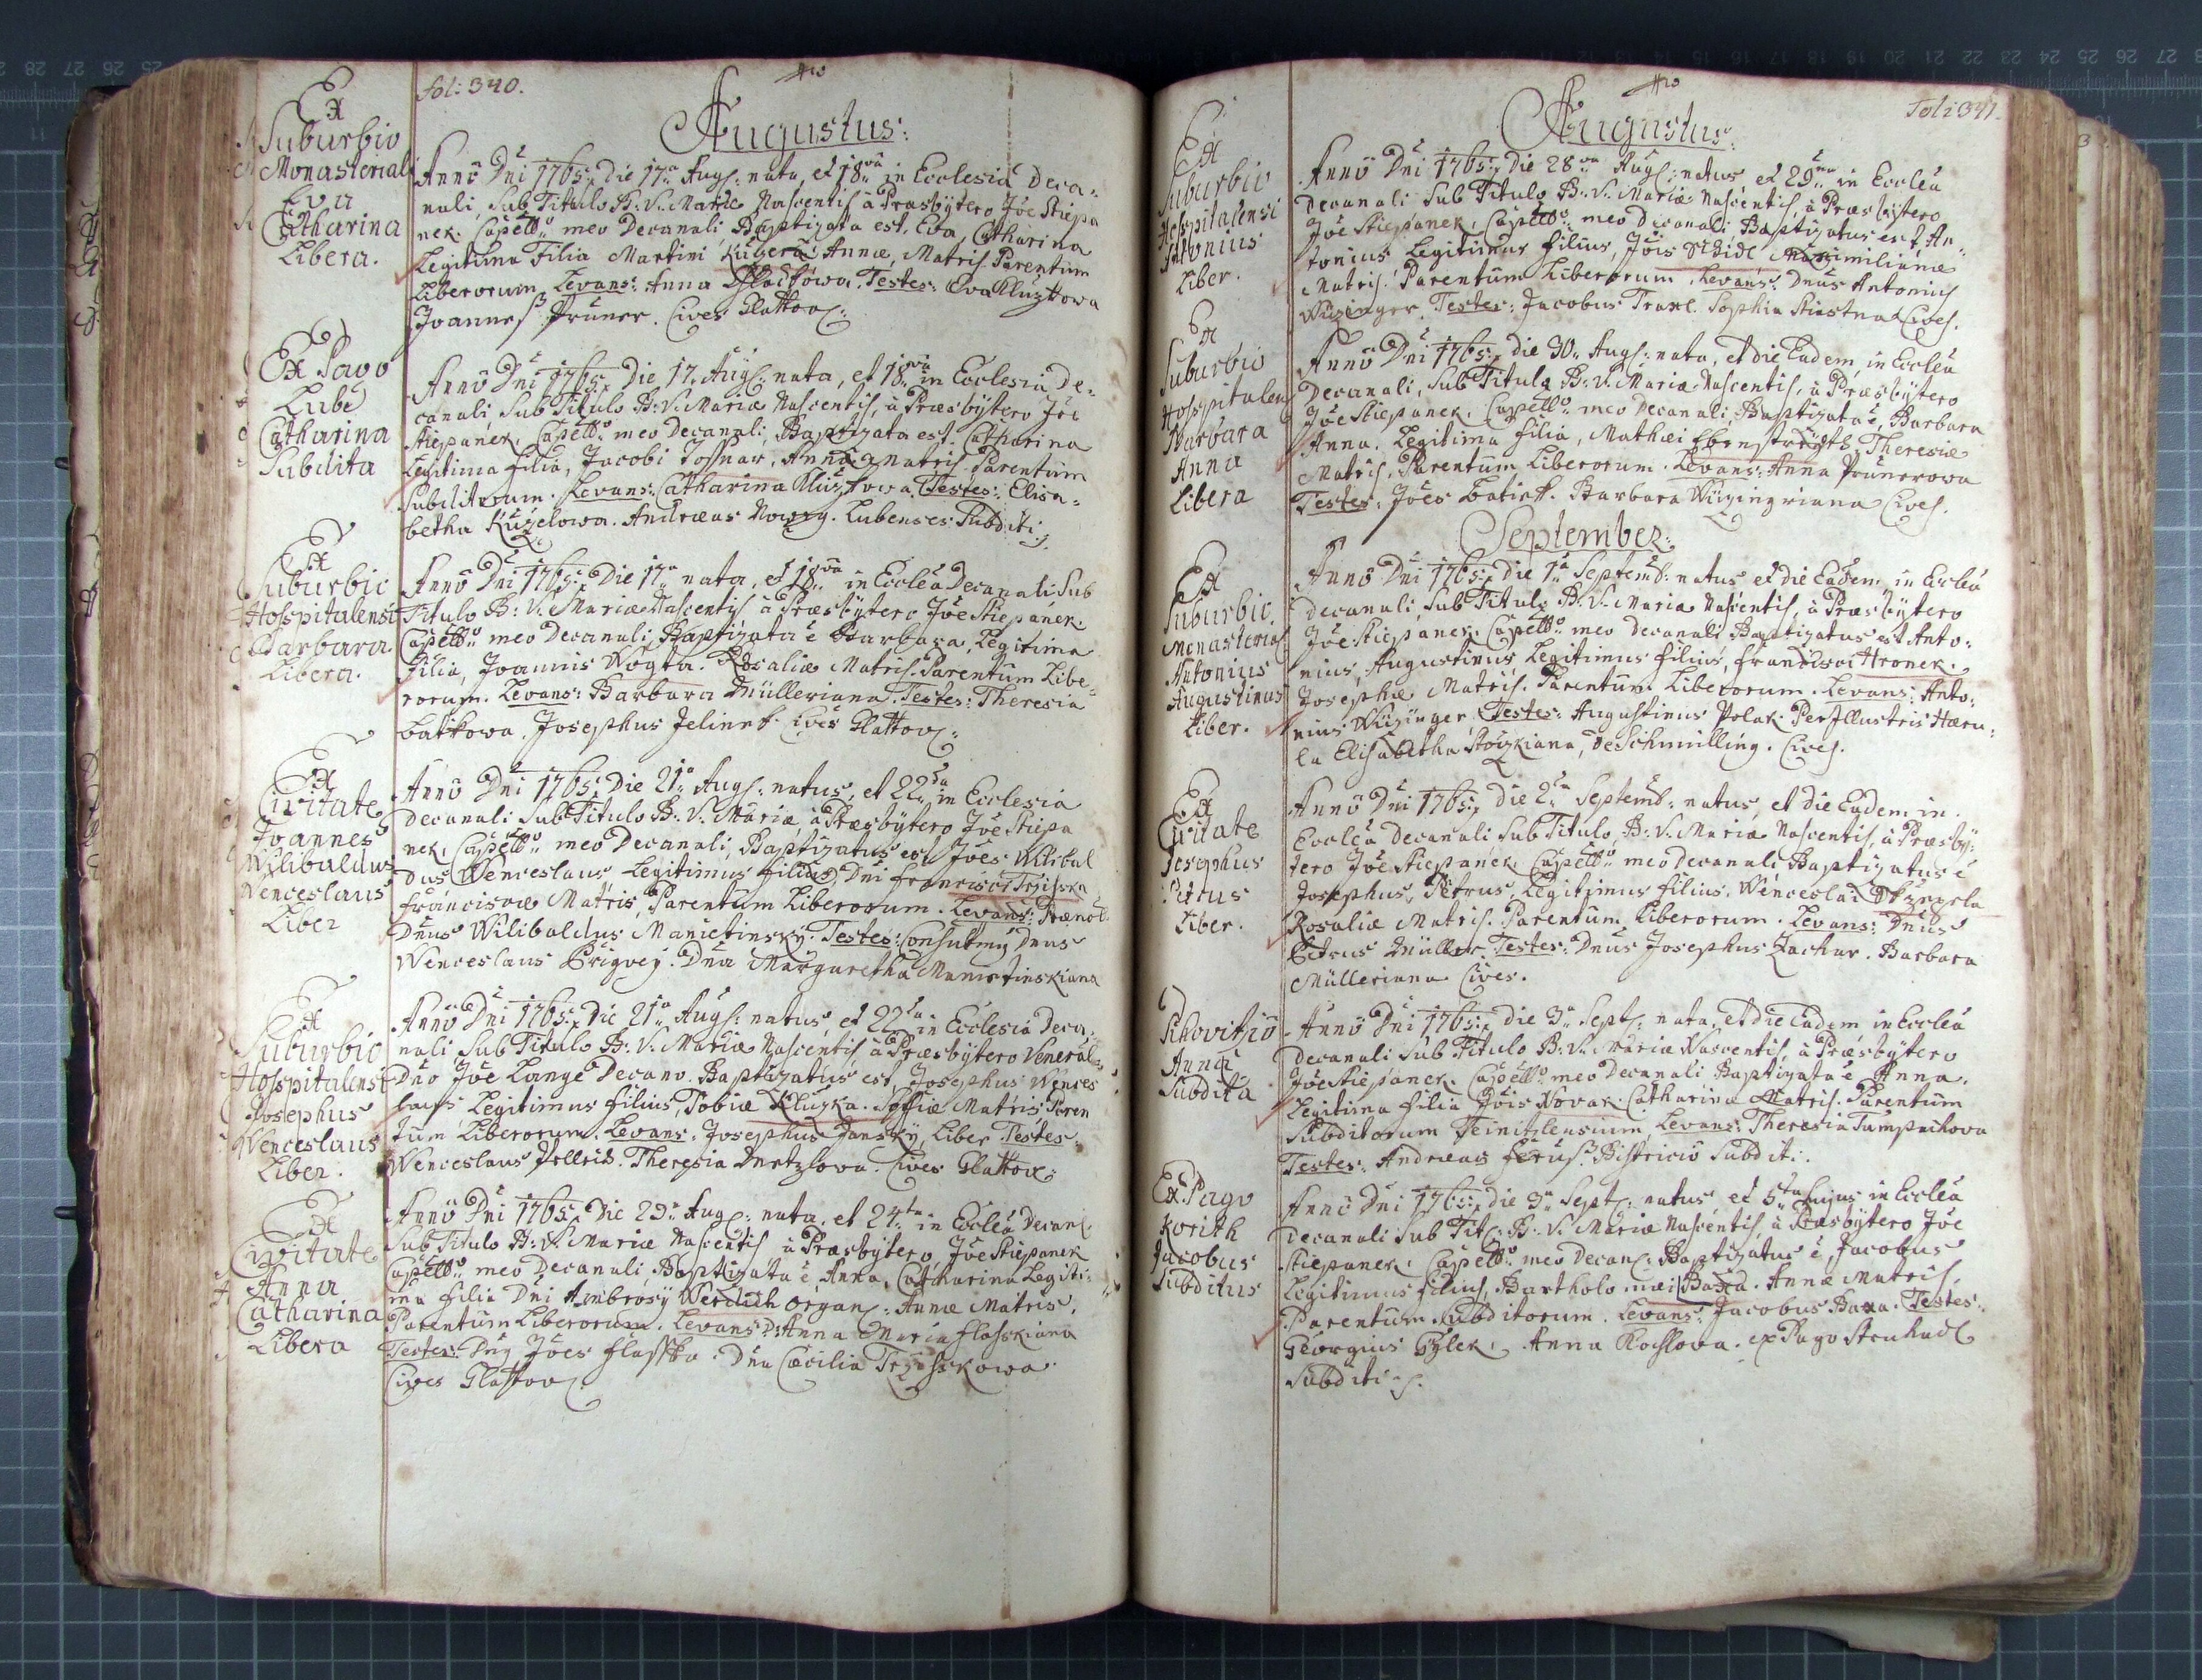 fol: 340.
Augustus:
Ex
Suburbio
Monasteriali
Eva
Catharina
Libera.
Anno Dni 1765: Die 17a Aug: nata, et 18va in Ecclesia Deca:
nali, Sub Titulo B: V. Mariæ Nascentis à Præsbÿtero Joe Stiepa
nek. Capello meo Decanali, Baptizata est, Eva, Catharina
Legitima Filia Martini Kučera Annæ, Matris Parentum
Liberorum, Levans: Anna Testes: Eva Kluzkowa
Joannes Pruner. Cives Glattov:
Ex Pago
Lube
Catharina
Subdita
Anno Dni 1765: Die 17. Aug: nata, et 18va in Ecclesia De:
canali Sub Titulo B: V. Mariæ Nascentis, à Præsbÿtero Joe
Stiepanek, Capello meo Decanali, Baptizata est Catharina
Legitima filia, Jacobi Tossnar, Annæ Matris Parentum
Subditorum. Levans: Catharina Kluzkowa, Testes: Elisa:
betha Kuželowa. Andræas Nowy. Lubenses Subditi:
Ex
Suburbio
Hosspitalensi
Barbara.
Libera.
Anno Dni 1765: Die 17a nata, et 18va in Ecclea Decanali Sub
Titulo B: V. Mariæ Nascentis à Præsbÿtero Joe Stiepanek.
Capello meo Decanali, Baptizata e Barbara, Legitima
Filia, Joannis Wogta. Rosaliæ Matris. Parentum Libe:
rorum. Levans: Barbara Mülleriana. Testes: Theresia
Batkowa. Josephus Jelinek. Cives Glattov:
Ex
Civitate
Joannes
Wilibaldus
Wenceslaus
Liber
Anno Dni 1765: Die 21a Aug: natus, et 22da in Ecclesia
Decanali Sub Titulo B: V. Mariæ à Præsbÿtero Joe Stiepa
nek, Capello meo Decanali, Baptizatus est Joes Wilibal
dus Wenceslaus Legitimus filius, Dni Francisci
Franciscæ Matris, Parentum Liberorum. Levans: Prænob:
Dnus Wilibaldus Manietinskÿ. Testes: Dnus
Wenceslaus Dna Margaretha Manietinskiana
Ex
Suburbio
Hosspitalensi
Josephus
Wenceslaus
Liber.
Anno Dni 1765: Die 21a Aug: natus, et 22da in Ecclesia Deca,
nali Sub Titulo B: V. Mariæ Nascentis, à Præsbÿtero Veneral
Dno Joe Lange Decano. Baptizatus est Josephus Wences
laus Legitimus filius, Tobiæ Kluzka. Sofiæ Matris Paren
tum Liberorum. Levans: Josephus Janskÿ, Liber Testes:
Wenceslaus Theresia Cives Glattov:
Ex
Civitate
Anna
Catharina
Libera
Anno Dni 1765: Die 23a Aug: nata, et 24ta in Ecclea Decan:
Sub Titulo B: V. Mariæ Nascentis à Præsbÿtero, Joe Stiepanek
Capello meo Decanali, Baptizata e Anna, Catharina Legiti:
ma filia Dni Ambrosÿ Werdich Organ: Annæ Matris,
Parentum Liberorum. Levans: D: Anna Maria Flasskiana
Testes: Dns Joes Flasska. Dna Cæcilia
Cives Glattov:
Fol: 341.
Augustus:
Ex
Suburbio
Hosspitalensi
Antonius
Liber.
Anno Dni 1765: Die 28va Aug: natus et 29na in Ecclea
Decanali Sub Titulo B: V. Mariæ Nascentis, à Præsbÿtero
Joe Stiepanek, Capello meo Decanali Baptizatus est An:
tonius Legitimus filius, Jois Maximilianæ
Matris. Parentum Liberorum, Levans: Dnus Antonius
Wizinger, Testes: Jacobus Traxl. Sophia Cives.
Ex
Suburbio
Hosspitalen
Barbara
Anna
Libera
Anno Dni 1765: die 30. Aug: nata, et die Eadem, in Ecclea
Decanali, Sub Titulo B: V. Mariæ Nascentis, à Præsbÿtero
Joe Stiepanek, Capello meo Decanali, Baptizata e, Barbara
Anna. Legitima filia, Mathæi Theresiæ
Matris, Parentum Liberorum. Levans: Anna Prunerowa
Testes: Joes Batiek. Barbara Cives.
September:
Ex
Suburbio
Monasteria
Antonius
Augustinus
Liber.
Anno Dni 1765: die 1a Septemb: natus et die Eadem in Ecclea
Decanali Sub Titulo B: V. Mariæ Nascentis, à Præsbÿtero
Joe Stiepanek. Capello meo Decanali Baptizatus est Anto:
nius, Augustinus Legitimus filius, Francisci Hronek.
Josephæ Matris. Parentum Liberorum. Levans: Anto:
nius Wizinger. Testes: Augustinus Polak. Per Jllustris Hæru:
la Elisabetha de Schmilling. Cives.
Ex
Civitate
Josephus
Petrus
Liber.
Anno Dni 1765: die 2da Septemb: natus, et die Eadem in
Ecclea Decanali Sub Titulo B: V. Mariæ Nascentis, à Præsbÿ:
tero Joe Stiepanek, Capello meo Decanali Baptizatus e
Josephus, Petrus, Legitimus filius. Wenceslai
Rosaliæ Matris. Parentum Liberorum. Levans: Dnus
Petrus Müller. Testes: Dnus Josephus Zachar. Barbara
Mülleriana Cives.
Anna
Subdita
Anno Dni 1765: die 3a Sept: nata, et die Eadem in Ecclea
Decanali Sub Titulo B: V. Mariæ Nascentis, à Præsbÿtero
Joe Stiepanek. Capello meo Decanali Baptizata e Anna.
Legitima filia Jois Novak. Catharina Matris. Parentum
Subditorum Levans: Theresia
Testes: Andræas Subditi.
Ex Pago
Korith
Jacobus
Subditus
Anno Dni 1765: die 3a Sept: natus et 5ta hujus in Ecclea
Decanali Sub Tit: B: V. Mariæ Nascentis, à Præsbÿtero Joe
Stiepanek, Capello meo Decan: Baptizatus e, Jacobus
Legitimus filius, Bartholomæi Baxa. Annæ Matris.
Parentum Subditorum. Levans: Jacobus Baxa. Testes:
Georgius Anna ex Pago
Subditi: